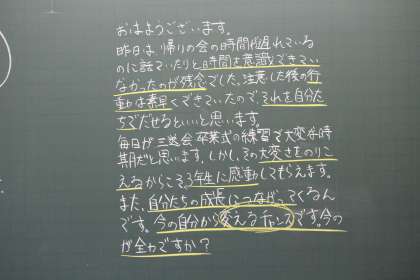 おはようございます。
昨日は、帰りの会の時間が遅れている
のに話していたりと時間を意識できてい
なかったのが残念でした。注意した後の行
動は素早くできていたので、それを自分た
ちでだせるといいと思います。
毎日が三送会、卒業式の練習で大変な時
期だと思います。しかし、その大変さをのりこ
えるからこそ、3年生に感動してもらえます。
また、自分たちの成長につながってくるん
です。今の自分から変えるチャンスです。今の
が全力ですか?